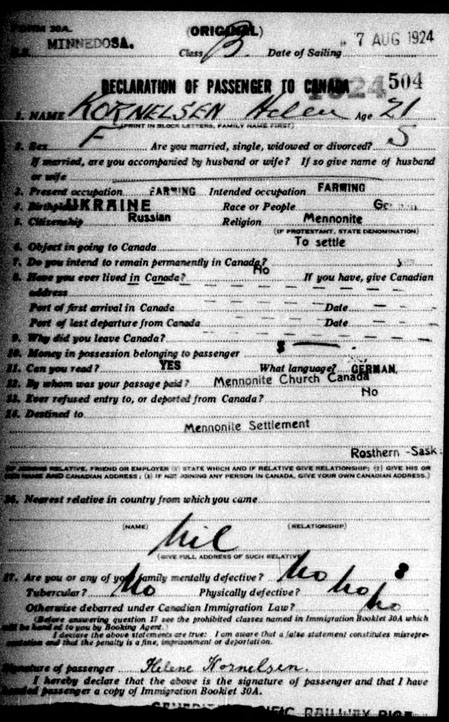 FORM 30A. (ORIGINAL)
S.S. MINNEDOSA. Class B Date of Sailing 7 AUG 1924
DECLARATION OF PASSENGER TO CANADA 1924 504
1. NAME KORNELSEN Helen Age 21
(PRINT IN BLOCK LETTERS, FAMILY NAME FIRST)
2. Sex F Are you married, single, widowed or divorced? S
If married, are you accompanied by husband or wife? If so give name of husband
or wife
3. Present occupation FARMING Intended occupation FARMING
4. Birthplace UKRAINE Race or People
5. Citizenship Russian Religion Mennonite
(IF PROTESTANT, STATE DENOMINATION)
6. Object in going to Canada To settle
7. Do you intend to remain permanently in Canada?
8. Have you ever lived in Canada? No If you have, give Canadian
address
Port of first arrival in Canada Date
Port of last departure from Canada Date
9. Why did you leave Canada?
10. Money in possession belonging to passenger $
11. Can you read? YES What language? GERMAN.
12. By whom was your passage paid? Mennonite Church Canada
13. Ever refused entry to, or deported from Canada? No
14. Destined to
Mennonite Settlement
Rosthern - Sask
(IF JOINING RELATIVE, FRIEND OR EMPLOYER (1) STATE WHICH AND IF RELATIVE GIVE RELATIONSHIP; (2) GIVE HIS OR
HER NAME AND CANADIAN ADDRESS; (3) IF NOT JOINING ANY PERSON IN CANADA, GIVE YOUR OWN CANADIAN ADDRESS.)
Nearest relative in country from which you came
(NAME) (RELATIONSHIP)
Nil
(GIVE FULL ADDRESS OF SUCH RELATIVE)
17. Are you or any of your family mentally defective? No
Tubercular? No Physically defective? No
Otherwise debarred under Canadian Immigration Law? No
(Before answering question 17 see the prohibited classes named in Immigration Booklet 30A which
will be handed to you by Booking Agent.)
I declare the above statements are true: I am aware that a false statement constitutes misrepre-
sentation and that the penalty is a fine, imprisonment or deportation.
Signature of passenger Helene Kornelsen.
I hereby declare that the above is the signature of passenger and that I have
handed passenger a copy of Immigration Booklet 30A.
PACIFIC RAILWAY